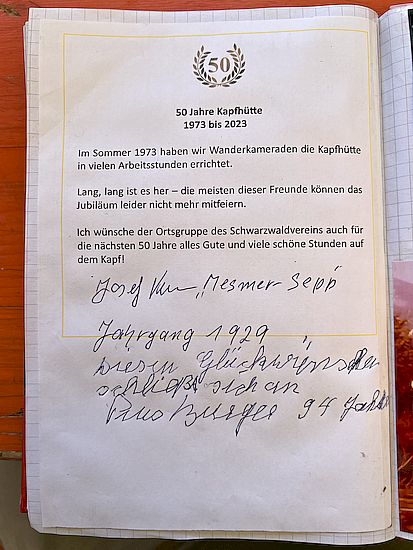 50
50 Jahre Kapfhütte
1973 bis 2023
Im Sommer 1973 haben wir Wanderkameraden die Kapfhütte
in vielen Arbeitsstunden errichtet.
Lang, lang ist es her – die meisten dieser Freunde können das
Jubiläum leider nicht mehr mitfeiern.
Ich wünsche der Ortsgruppe des Schwarzwaldvereins auch für
die nächsten 50 Jahre alles Gute und viele schöne Stunden auf
dem Kapf!
Josef „Mesmer-Sepp"
Jahrgang 1929
Diesen Glückwünschen
schließt sich an
Burger 94 Jahre